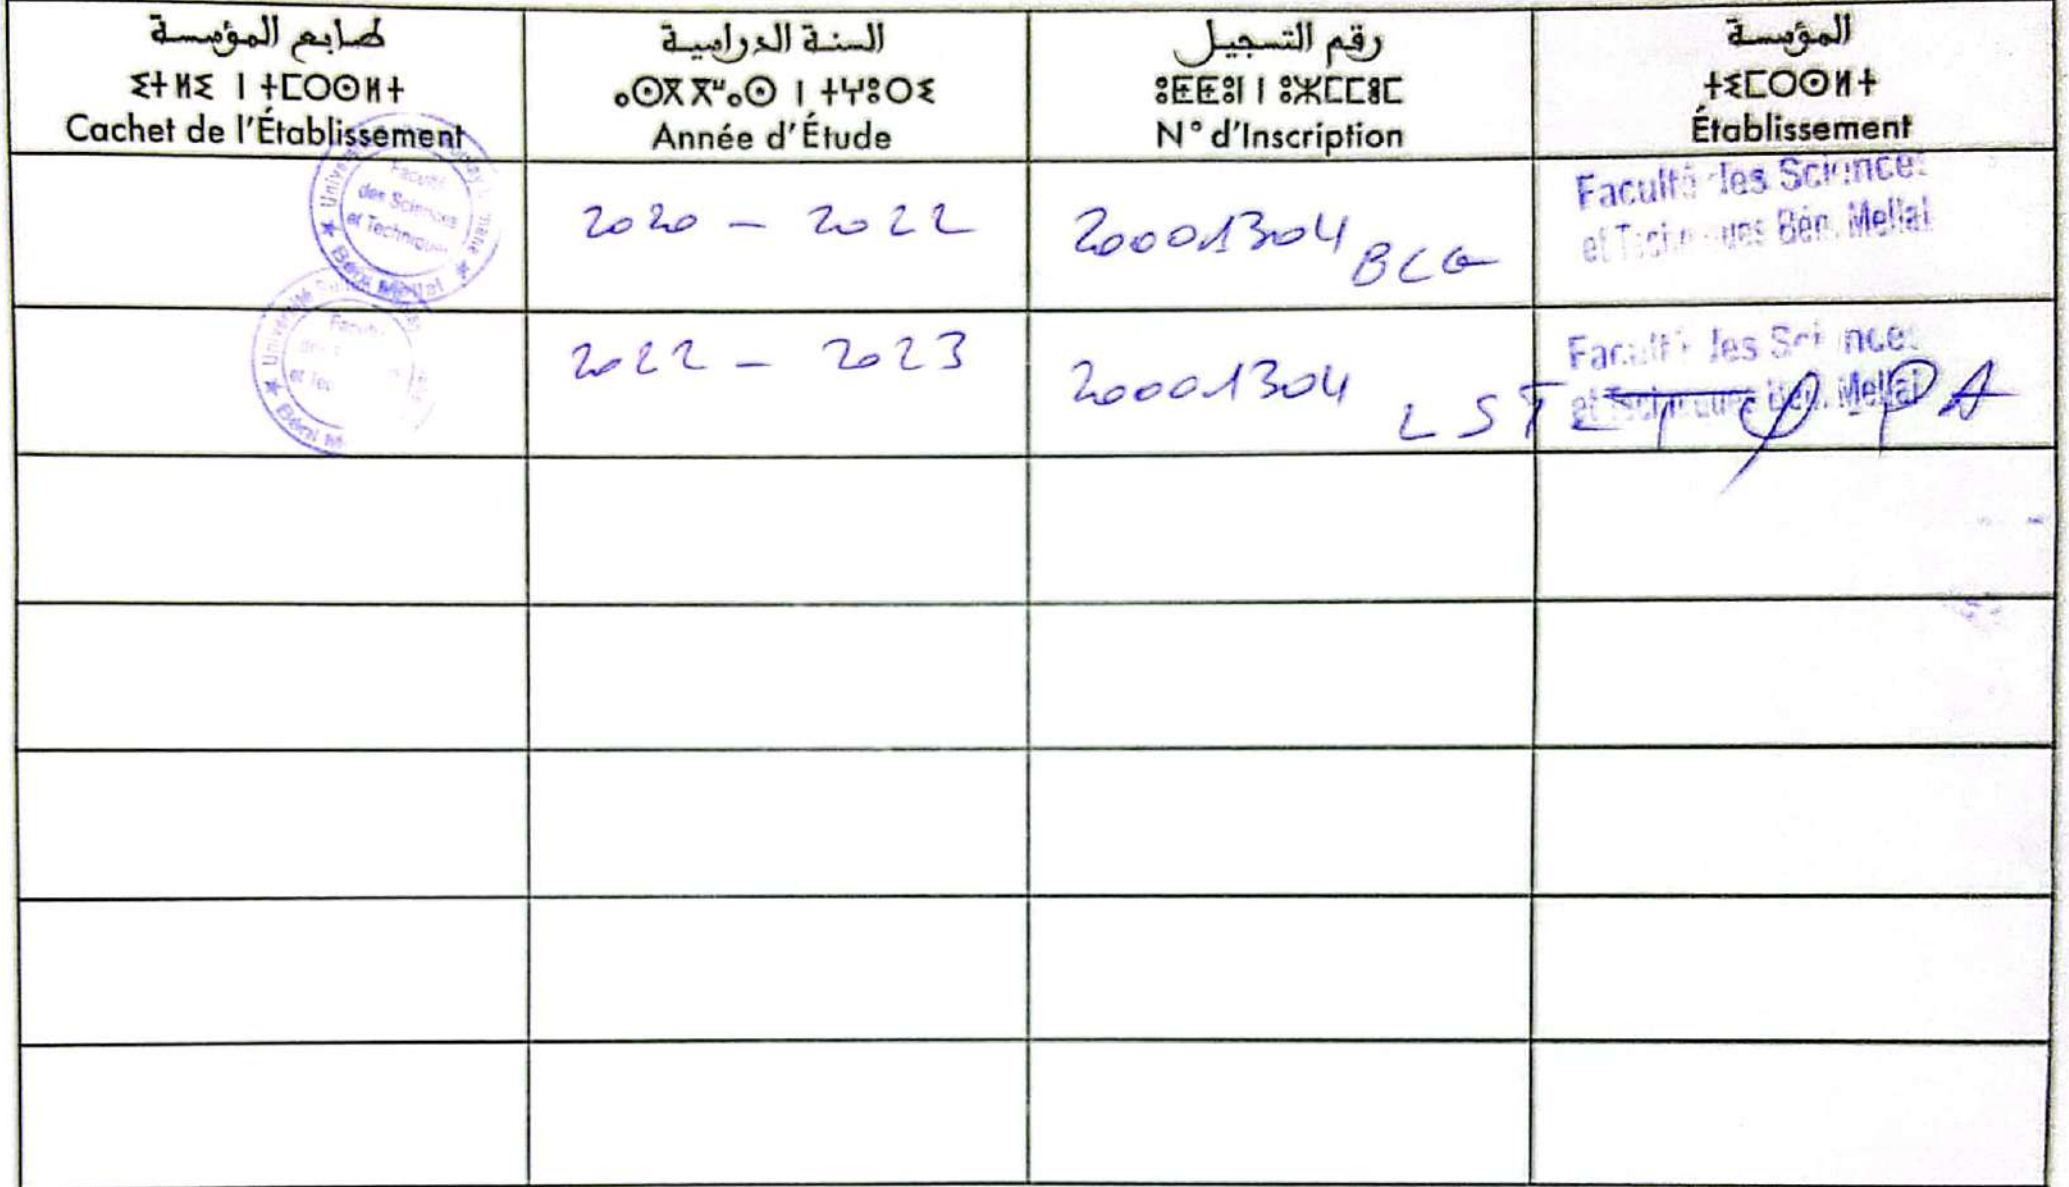 طابع المؤسسة
ⵉⵜⵍⵉ ⵏ ⵜⵎⵔⵙⵍⵜ
Cachet de l'Établissement
السنة الدراسية
ⴰⵙⴳⴳⵯⴰⵙ ⵏ ⵜⵖⵓⵔⵉ
Année d'Étude
رقم التسجيل
ⵓⵟⵟⵓⵏ ⵏ ⵓⵣⵎⵎⵓⵎ
N° d'Inscription
المؤسسة
ⵜⵉⵎⵔⵙⵍⵜ
Établissement
Faculté
des Sciences
et Techniques
Béni Mellal
2020 - 2022
20001304 BCG
Faculté des Sciences
et Techniques Béni Mellal
Université
Faculté
2022 - 2023
20001304
LST
Faculté des Sciences
et Techniques Béni Mellal
PA